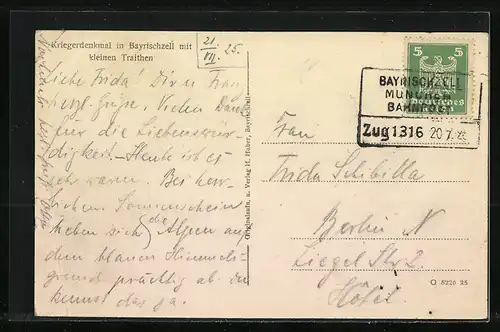 Kriegerdenkmal in Bayrischzell mit
kleinen Traithen
21
VII. 25.
Liebe Frida! Dir u. Frau
herzl. Grüße. Vielen Dank
für die Liebenswür-
digkeit. – Heute ist es
sehr warm. Bei herr-
lichem Sonnenschein
heben sich die Alpen auf
dem blauen Himmels-
grund prächtig ab. Du
kennst das ja.
Originalaufn. u. Verlag H. Huber, Bayrischzell
5 5
Deutsches
BAYRISCHZELL
MÜNCHEN
BAHNPOST
Zug 1316 20.7.25
Frau
Frida Schibilla
Berlin N
Ziegel Str. 2
Hotel
O 5220 25